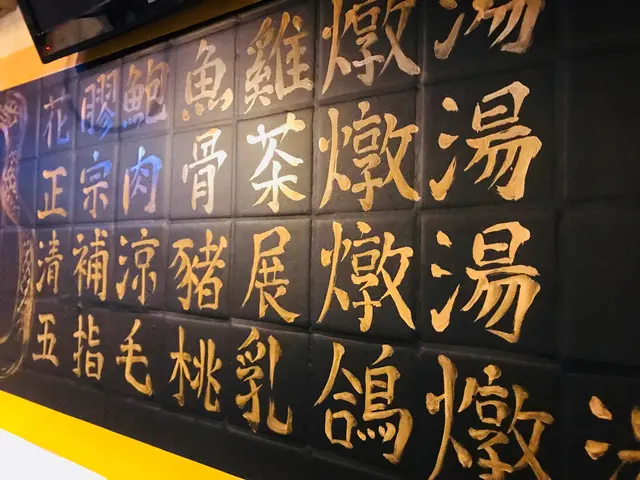 花膠鮑魚雞燉湯
正宗肉骨茶燉湯
清補涼豬展燉湯
五指毛桃乳鴿燉